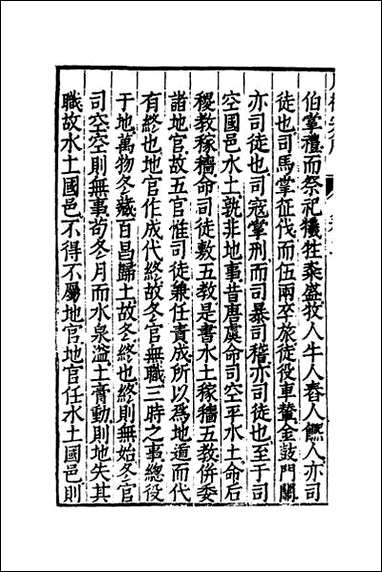 伯掌禮而祭祀犧牲粢盛牧人牛人舂人饎人亦司
徒也司馬掌征伐而伍兩卒旅徒役車輦金鼓門關
亦司徒也司寇掌刑而司暴司稽亦司徒也至于司
空國邑水土孰非地事昔唐虞命司空平水土命后
稷教稼穡命司徒敷五教是書水土稼穡五教併委
諸地官故五官惟司徒兼任責成所以爲地道而代
有終也地官作成代終故冬官無職三時之事總役
于地萬物冬藏百昌歸土故冬終也終則無始冬官
司空空則無事苟冬月而水泉溢土膏動則地失其
職故水土國邑不得不屬地官地官任水土國邑則